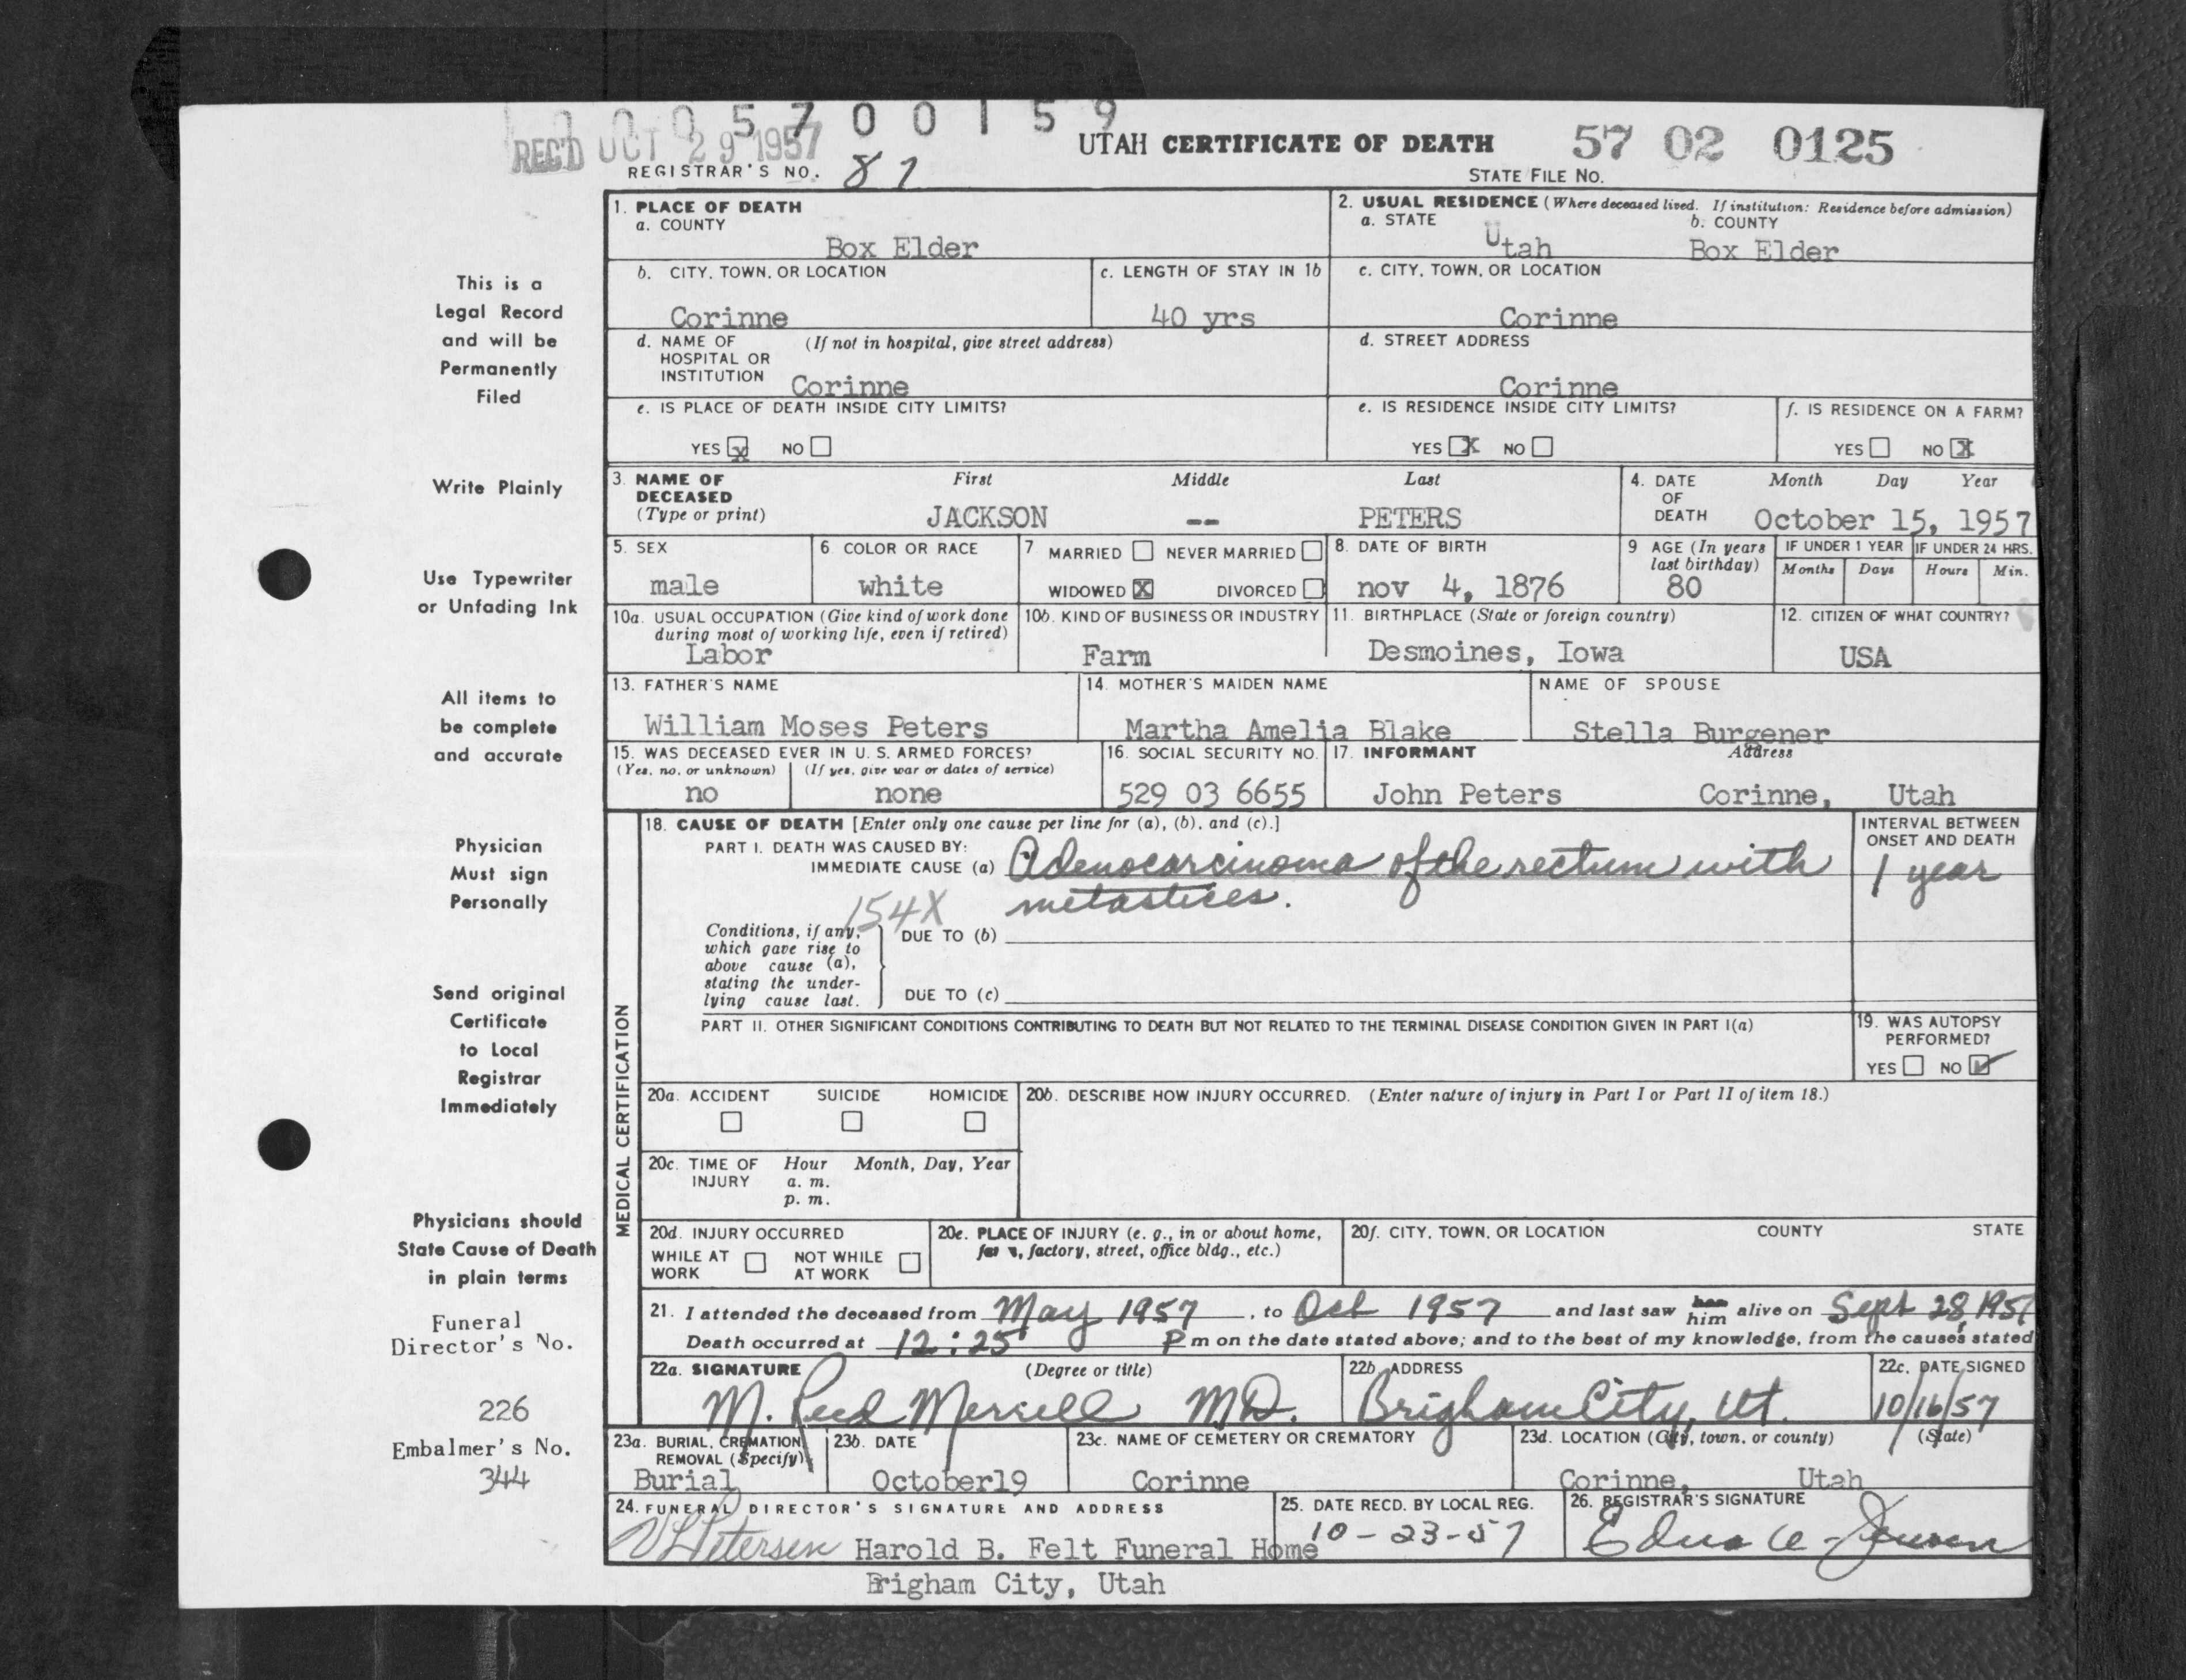 1 0 0 5 7 0 0 1 5 9
REC'D OCT 29 1957
UTAH CERTIFICATE OF DEATH 57 02 0125
REGISTRAR'S NO. 81 STATE FILE NO.
1. PLACE OF DEATH
a. COUNTY
Box Elder
2. USUAL RESIDENCE (Where deceased lived. If institution: Residence before admission)
a. STATE b. COUNTY
Utah Box Elder
b. CITY, TOWN, OR LOCATION
Corinne
c. LENGTH OF STAY IN 1b
40 yrs
c. CITY, TOWN, OR LOCATION
Corinne
d. NAME OF (If not in hospital, give street address)
HOSPITAL OR
INSTITUTION Corinne
d. STREET ADDRESS
Corinne
e. IS PLACE OF DEATH INSIDE CITY LIMITS?
YES X NO
e. IS RESIDENCE INSIDE CITY LIMITS?
YES X NO
f. IS RESIDENCE ON A FARM?
YES NO X
3. NAME OF First Middle Last
DECEASED
(Type or print) JACKSON -- PETERS
4. DATE Month Day Year
OF
DEATH October 15, 1957
5. SEX
male
6 COLOR OR RACE
white
7 MARRIED NEVER MARRIED
WIDOWED X DIVORCED
8. DATE OF BIRTH
nov 4, 1876
9 AGE (In years
last birthday)
80
IF UNDER 1 YEAR IF UNDER 24 HRS.
Months Days Hours Min.
10a. USUAL OCCUPATION (Give kind of work done
during most of working life, even if retired)
Labor
10b. KIND OF BUSINESS OR INDUSTRY
Farm
11. BIRTHPLACE (State or foreign country)
Desmoines, Iowa
12. CITIZEN OF WHAT COUNTRY?
USA
13. FATHER'S NAME
William Moses Peters
14. MOTHER'S MAIDEN NAME
Martha Amelia Blake
NAME OF SPOUSE
Stella Burgener
15. WAS DECEASED EVER IN U. S. ARMED FORCES?
(Yes, no, or unknown) (If yes, give war or dates of service)
no none
16. SOCIAL SECURITY NO.
529 03 6655
17. INFORMANT Address
John Peters Corinne, Utah
MEDICAL CERTIFICATION
18. CAUSE OF DEATH [Enter only one cause per line for (a), (b), and (c).]
PART I. DEATH WAS CAUSED BY:
IMMEDIATE CAUSE (a) Adenocarcinoma of the rectum with
metastices.
154X
INTERVAL BETWEEN
ONSET AND DEATH
1 year
Conditions, if any,
which gave rise to
above cause (a),
stating the under-
lying cause last.
DUE TO (b)
DUE TO (c)
PART II. OTHER SIGNIFICANT CONDITIONS CONTRIBUTING TO DEATH BUT NOT RELATED TO THE TERMINAL DISEASE CONDITION GIVEN IN PART I(a)
19. WAS AUTOPSY
PERFORMED?
YES NO ✓
20a. ACCIDENT SUICIDE HOMICIDE
20b. DESCRIBE HOW INJURY OCCURRED. (Enter nature of injury in Part I or Part II of item 18.)
20c. TIME OF Hour Month, Day, Year
INJURY a. m.
p. m.
20d. INJURY OCCURRED
WHILE AT NOT WHILE
WORK AT WORK
20e. PLACE OF INJURY (e. g., in or about home,
factory, street, office bldg., etc.)
20f. CITY, TOWN, OR LOCATION COUNTY STATE
21. I attended the deceased from May 1957, to Oct 1957 and last saw her him alive on Sept 28, 1957
Death occurred at 12:25 P m on the date stated above; and to the best of my knowledge, from the causes stated
22a. SIGNATURE (Degree or title)
M. Reed Merrell MD.
22b. ADDRESS
Brigham City, Ut.
22c. DATE SIGNED
10/16/57
23a. BURIAL, CREMATION
REMOVAL (Specify)
Burial
23b. DATE
October19
23c. NAME OF CEMETERY OR CREMATORY
Corinne
23d. LOCATION (City, town, or county) (State)
Corinne, Utah
24. FUNERAL DIRECTOR'S SIGNATURE AND ADDRESS
Petersen Harold B. Felt Funeral Home
Brigham City, Utah
25. DATE RECD. BY LOCAL REG.
10-23-57
26. REGISTRAR'S SIGNATURE
This is a
Legal Record
and will be
Permanently
Filed
Write Plainly
Use Typewriter
or Unfading Ink
All items to
be complete
and accurate
Physician
Must sign
Personally
Send original
Certificate
to Local
Registrar
Immediately
Physicians should
State Cause of Death
in plain terms
Funeral
Director's No.
226
Embalmer's No.
344